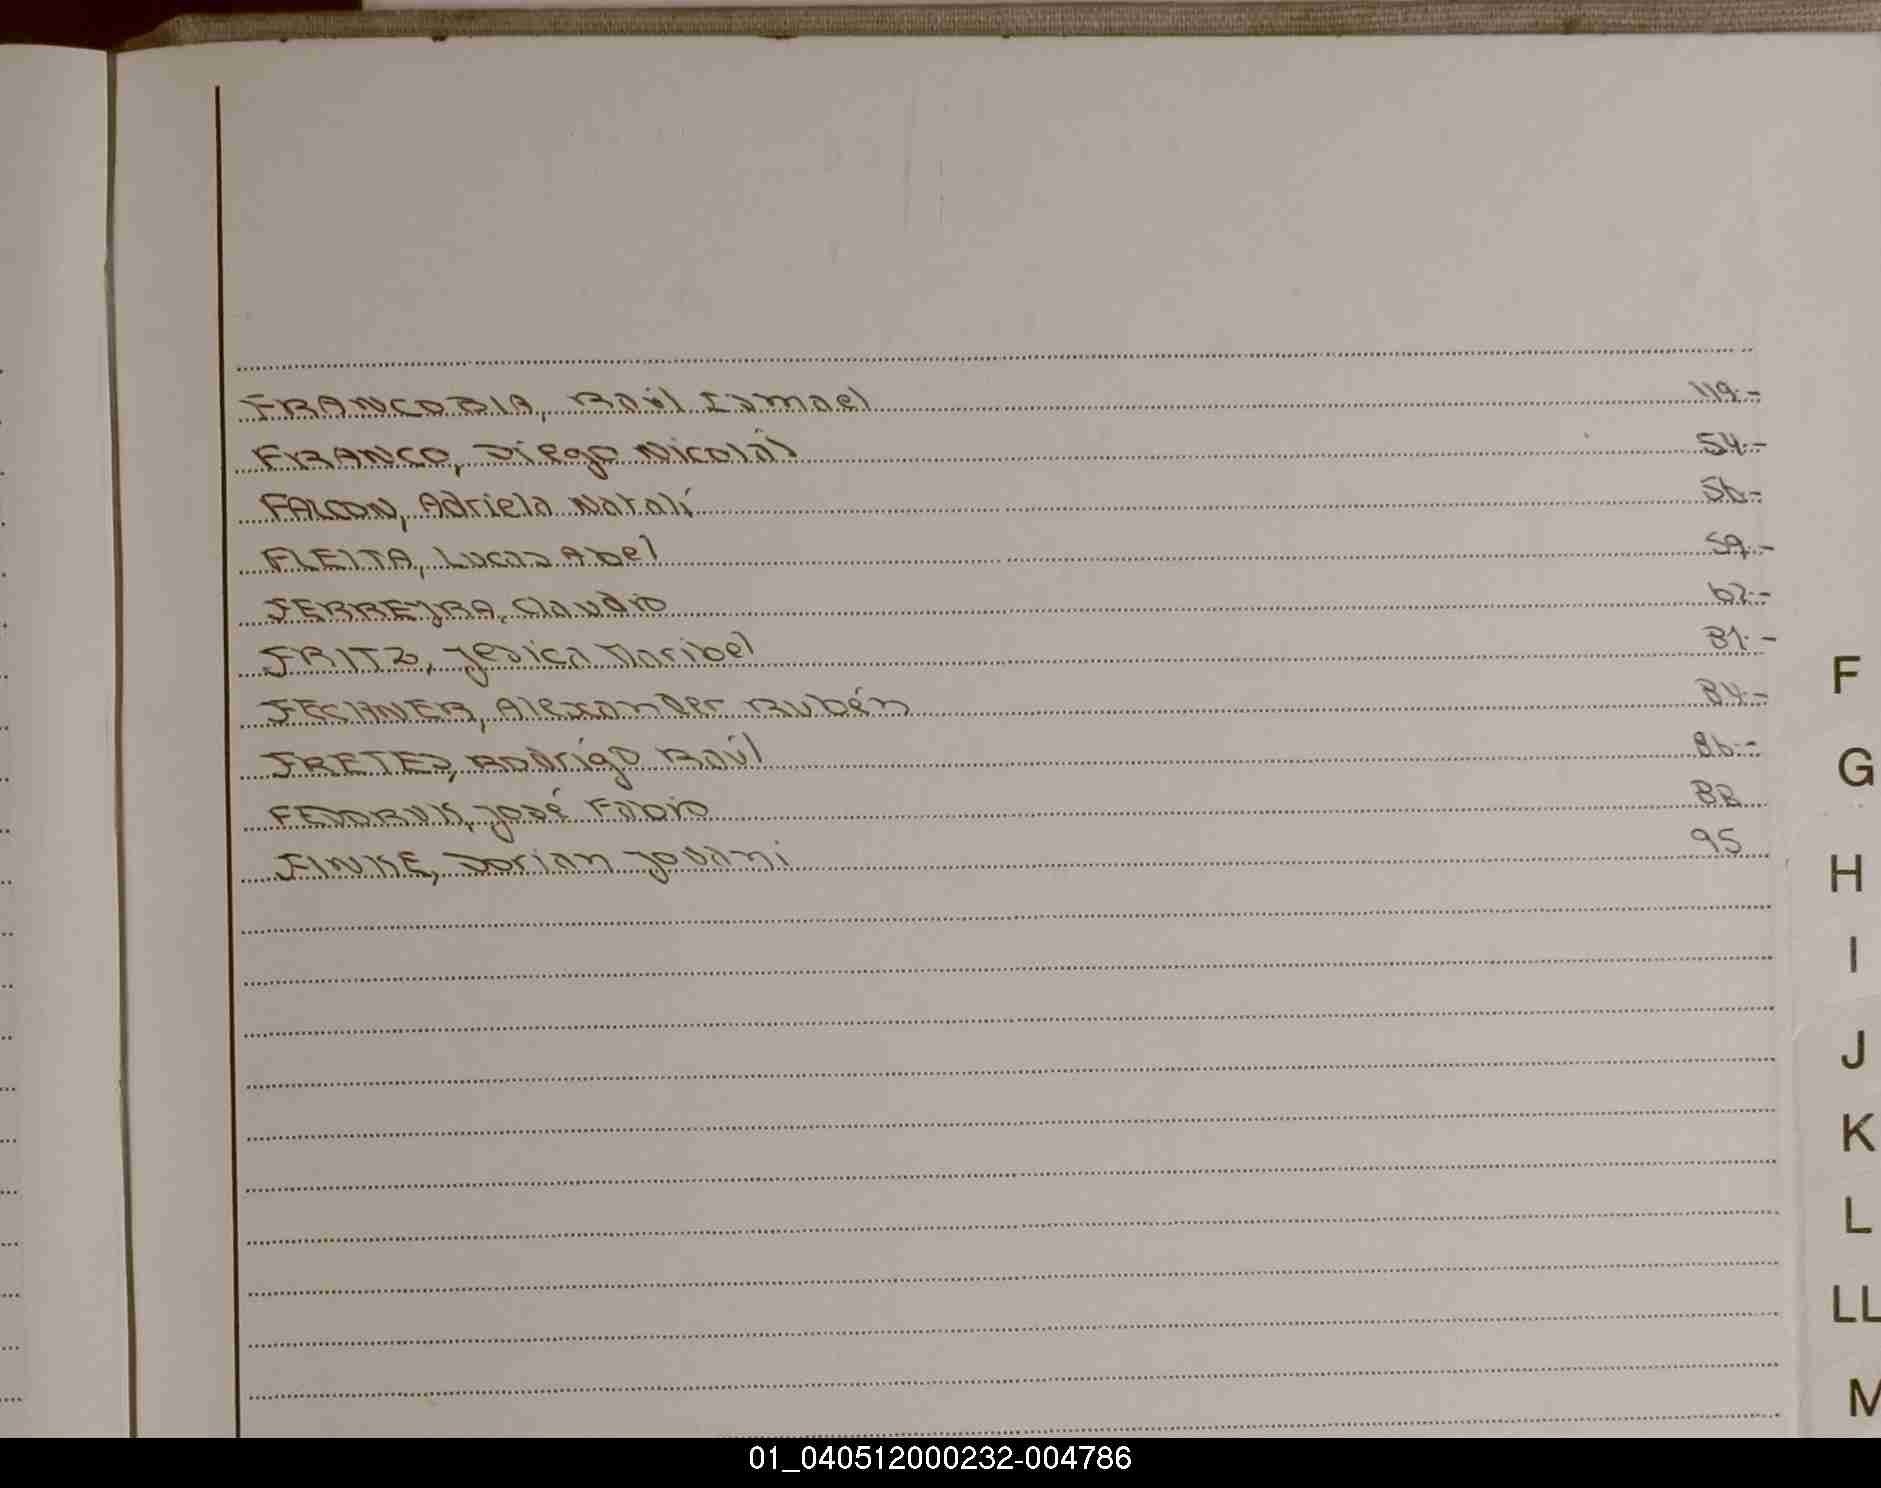 FRANCOBIA, Raúl Ismael 119.-
FRANCO, Diego Nicolás 54.-
FALCON, Adriela Natalí 56-
FLEITA, Lucas Abel 59.-
FERREYRA, Claudio 62.-
FRITZ, Jesica Maribel 81.-
FECHNER, Alexander Rubén 84.-
FRETES, Rodrigo Raúl 86.-
FEDORUK, José Fabio 88
FINKE, Dorian Jovani 95
F
G
H
I
J
K
L
LL
M
01_040512000232-004786